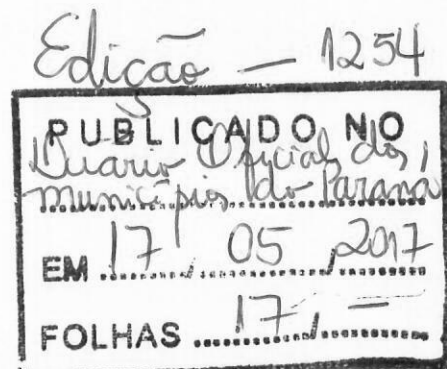 Edição — 1254
PUBLICADO NO
Diário Oficial dos
municípios do Paraná
EM 17 / 05 / 2017
FOLHAS 17 / —